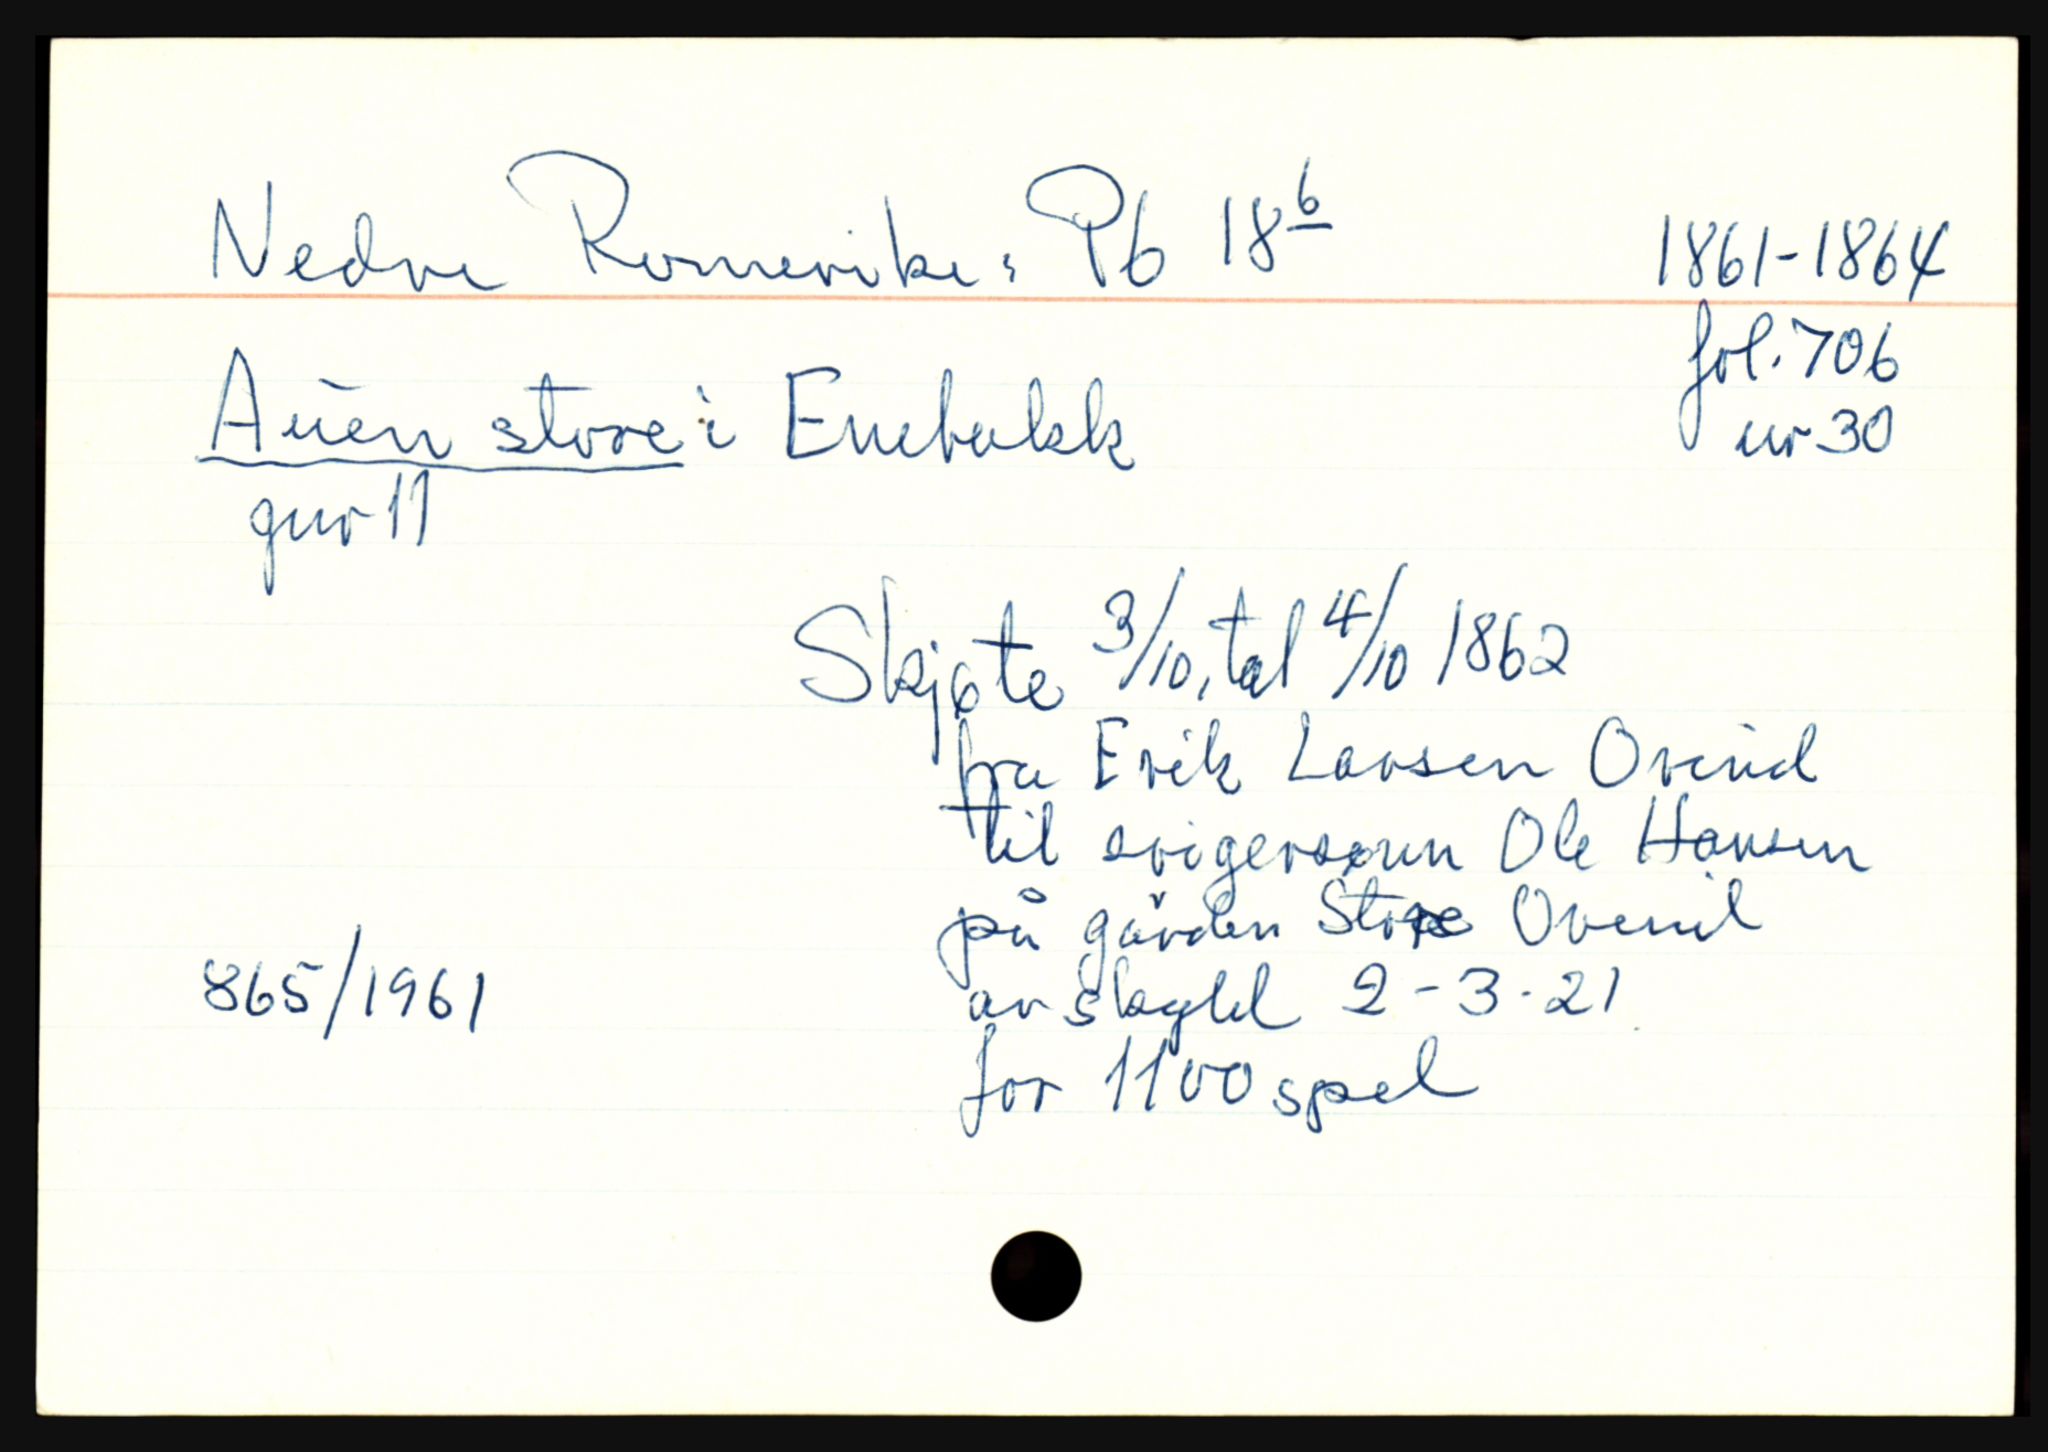 Nedre Romerike: Pb 18 6 1861-1864
fol. 706
Auen store i Enebakk nr 30
gnr 11
Skjøte 3/10, tal 4/10 1862
fra Erik Larsen Oveuid
til svigersønn Ole Hansen
på gården Store Oveuil
865/1961
av skyld 2-3-21
for 1100 spd